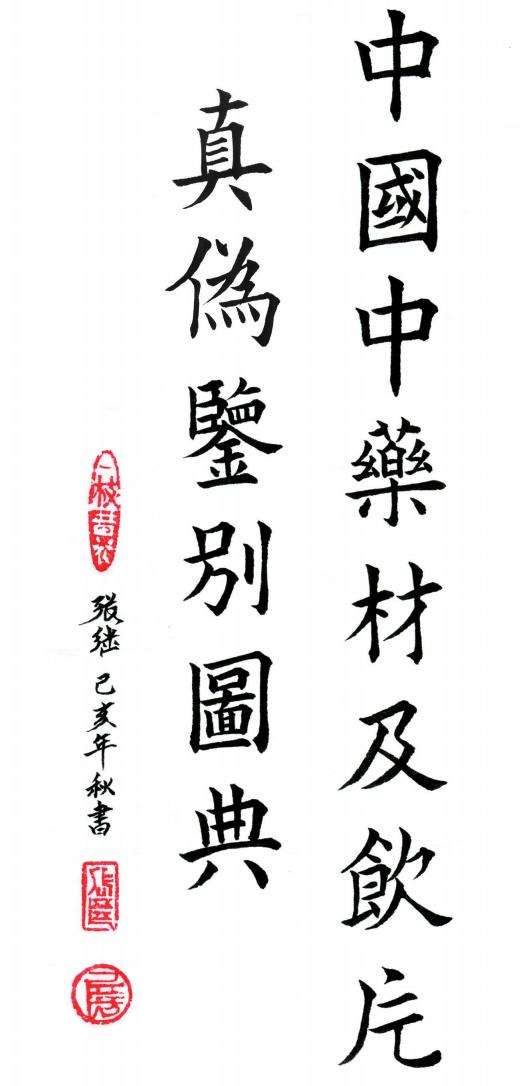 中國中藥材及飲片
真偽鑒別圖典
張继 己亥年秋書